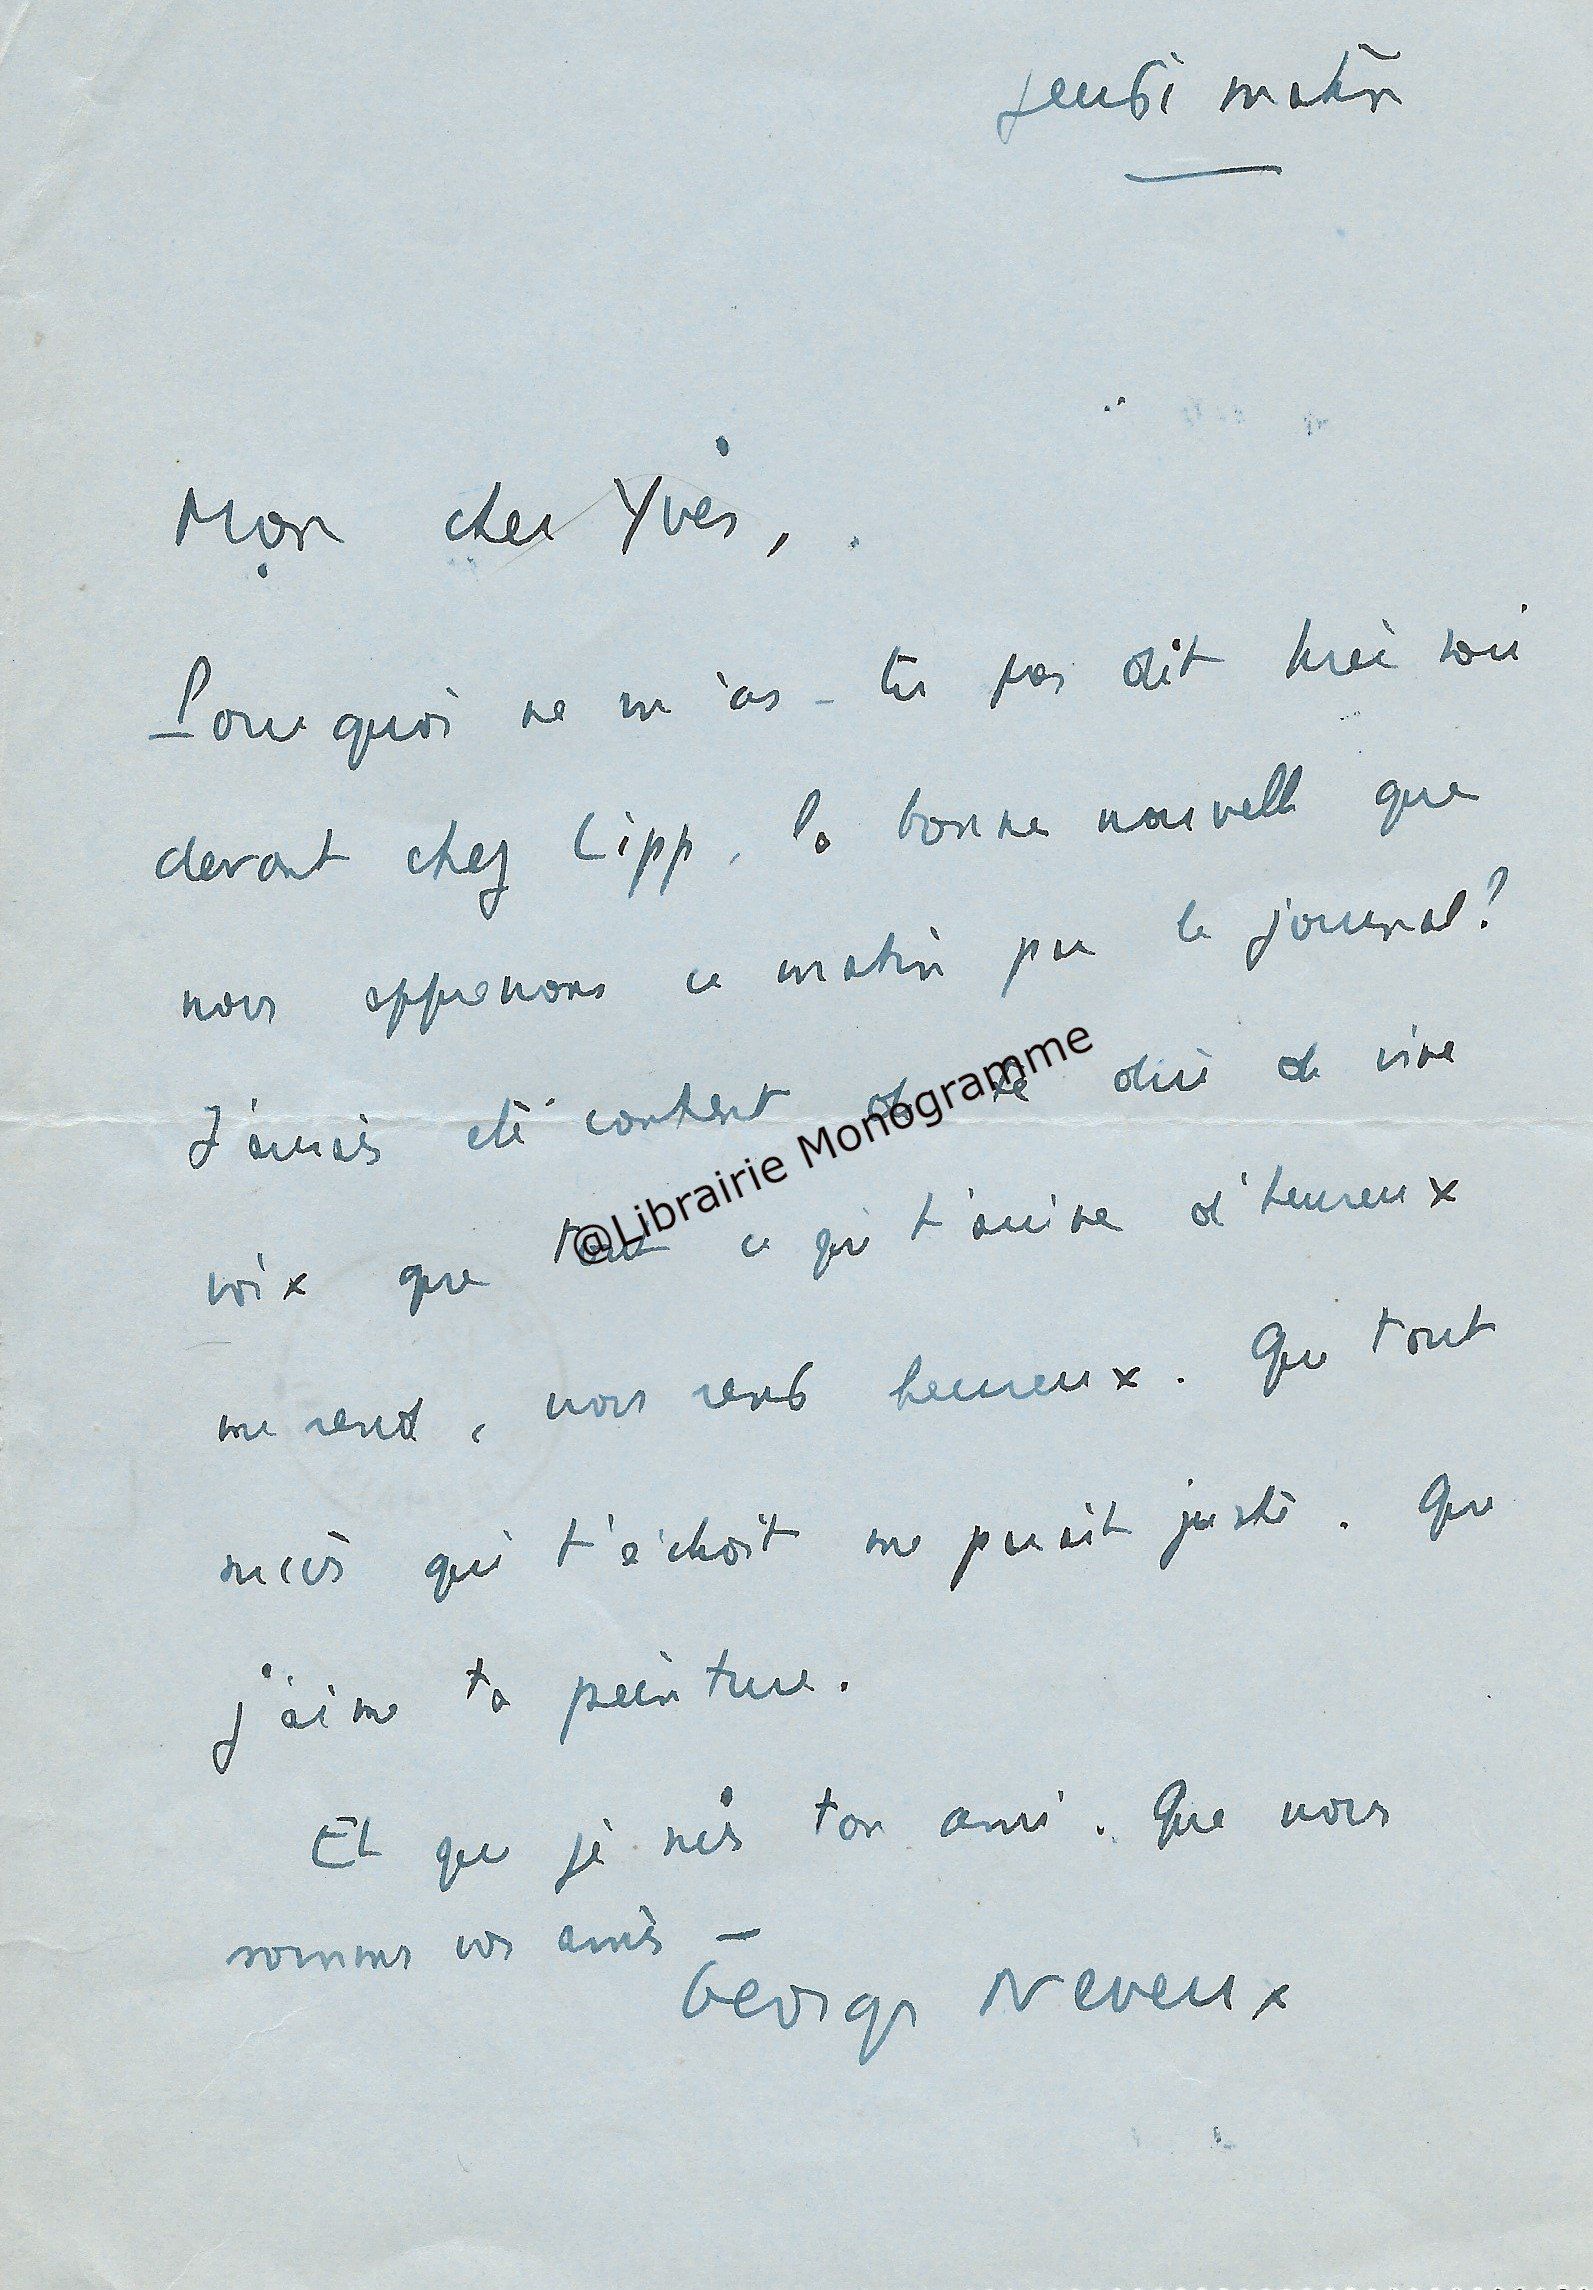 Jeudi matin
Mon cher Yves,
Pourquoi ne m'as-tu pas dit hier soir
devant chez Lipp, la bonne nouvelle que
nous apprenons ce matin par le journal?
J'aurais été content de te dire de vive
@Librairie Monogramme
voix que tout ce qui t'arrive d'heureux
me rend, nous rend heureux. Que tout
succès qui t'échoit me paraît juste. Que
j'aime ta peinture.
Et que je suis ton ami. Que nous
sommes vos amis —
Georges Neveux